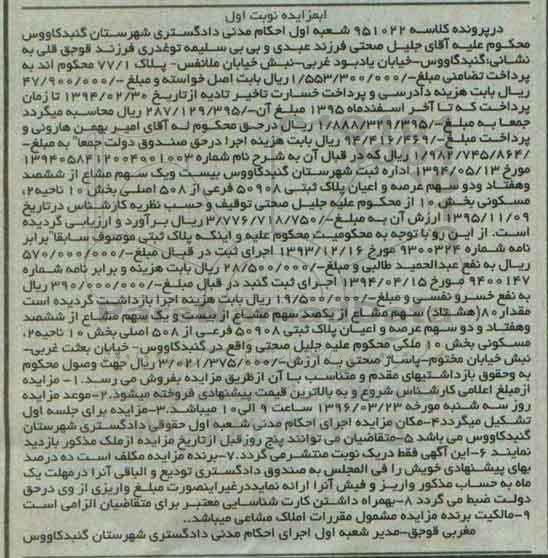 آبمزایده نوبت اول
درپرونده کلاسه ۹۵۱۰۲۲ شعبه اول احکام مدنی دادگستری شهرستان گنبدکاووس
محکوم علیه آقای جلیل صحتی فرزند عبدی و بی بی سلیمه توغدری فرزند قوجق قلی به
نشانی:گنبدکاووس-خیابان یادبود غربی-نبش خیابان ملانفس- پلاک ۷۷/۱ محکوم اند به
پرداخت تضامنی مبلغ-/۱/۵۵۳/۳۰۰/۰۰۰ ریال بابت اصل خواسته و مبلغ -/۴۷/۹۰۰/۰۰۰
ریال بابت هزینه دادرسی و پرداخت خسارت تاخیر تادیه ازتاریخ ۱۳۹۴/۰۲/۳۰ تا زمان
پرداخت که تا آخر اسفندماه ۱۳۹۵ مبلغ آن-/۲۸۷/۱۲۹/۳۹۵ ریال محاسبه میگردد
جمعا به مبلغ-/۱/۸۸۸/۳۲۹/۳۹۵ ریال درحق محکوم له آقای امیر بهمن هارونی و
پرداخت مبلغ-/۹۴/۴۱۶/۴۶۹ ریال بابت هزینه اجرا درحق صندوق دولت جمعا" به مبلغ-
/۱/۹۸۲/۷۴۵/۸۶۴ ریال که در قبال آن به شرح نام شماره ۱۳۹۴۰۵۸۴۱۲۰۰۴۰۰۱۰۰۳
مورخ ۱۳۹۴/۰۵/۱۳ اداره ثبت شهرستان گنبدکاووس بیست ویک سهم مشاع از ششصد
وهفتاد ودو سهم عرصه و اعیان پلاک ثبتی ۵۰۹۰۸ فرعی از ۵۰۸ اصلی بخش ۱۰ ناحیه۲،
مسکونی بخش ۱۰ از محکوم علیه جلیل صحتی توقیف و حسب نظریه کارشناس درتاریخ
۱۳۹۵/۱۱/۰۹ ارزش آن به مبلغ-/۳/۷۷۶/۷۱۸/۷۵۰ ریال برآورد و ارزیابی گردیده
است. از این رو با توجه به محکومیت محکوم علیه و اینکه پلاک ثبتی موصوف سابقا"برابر
نامه شماره ۹۳۰۰۳۲۴ مورخ ۱۳۹۳/۱۲/۱۶ اجرای ثبت در قبال مبلغ-/۵۷۰/۰۰۰/۰۰۰
ریال به نفع عبدالحمید طالبی و مبلغ-/۲۸/۵۰۰/۰۰۰ ریال بابت هزینه و برابر نامه شماره
۹۴۰۰۱۴۷ مورخ ۱۳۹۴/۰۴/۱۵ اجرای ثبت گنبد در قبال مبلغ-/۳۹۰/۰۰۰/۰۰۰ ریال
به نفع خسرو نفسی و مبلغ-/۱۹/۵۰۰/۰۰۰ ریال بابت هزینه اجرا بازداشت گردیده است
مقدار۸۰(هشتاد) سهم مشاع از یکصد سهم مشاع از بیست و یک سهم مشاع از ششصد
وهفتاد و دو سهم عرصه و اعیان پلاک ثبتی ۵۰۹۰۸ فرعی از ۵۰۸ اصلی بخش ۱۰ ناحیه۲،
مسکونی بخش ۱۰ ملکی محکوم علیه جلیل صحتی واقع در گنبدکاووس- خیابان بعثت غربی-
نبش خیابان مختوم-پاساژ صحتی به ارزش-/۳/۰۲۱/۳۷۵/۰۰۰ ریال جهت وصول محکوم
به وحقوق بازداشتهای مقدم و متناسب با آن ازطریق مزایده بفروش می رسد.۱- مزایده
ازمبلغ اعلامی کارشناس شروع و به بالاترین قیمت پیشنهادی فروخته میشود.۲-موعد مزایده
روز سه شنبه مورخه ۱۳۹۶/۰۳/۲۳ ساعت ۹ الی۱۰ میباشد.۳-مزایده برای جلسه اول
تشکیل میگردد۴-مکان مزایده اجرای احکام مدنی شعبه اول حقوقی دادگستری شهرستان
گنبدکاووس می باشد ۵-متقاضیان می توانند پنج روز قبل ازتاریخ مزایده ازملک مذکور بازدید
نمایند ۶-این آگهی فقط دریک نوبت منتشر می گردد.۷-برنده مزایده مکلف است ده درصد
بهای پیشنهادی خویش را فی المجلس به صندوق دادگستری تودیع و الباقی آنرا درمهلت یک
ماه به حساب مذکور واریز و فیش آنرا ارائه نمایددرغیراینصورت مبلغ واریزی از وی درحق
دولت ضبط می گردد ۸-بهمراه داشتن کارت شناسایی معتبر برای متقاضیان الزامی است
۹-مالکیت برنده مزایده مشمول مقررات املاک مشاعی میباشد..
مغربی قوجق-مدیر شعبه اول اجرای احکام مدنی دادگستری شهرستان گنبدکاووس